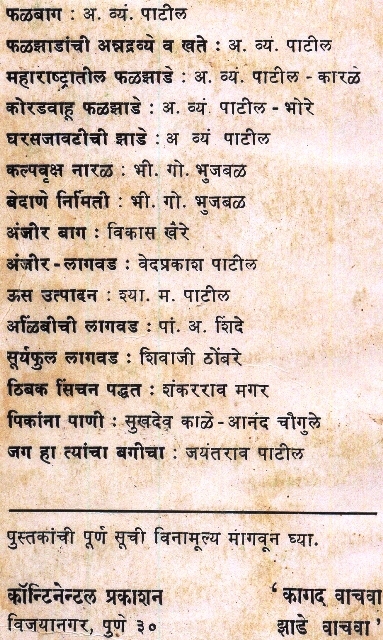 फळबाग : अ. व्यं. पाटील
फळझाडांची अन्नद्रव्ये व खते : अ. व्यं. पाटील
महाराष्ट्रातील फळझाडे : अ. व्यं. पाटील - कारळे
कोरडवाहू फळझाडे : अ. व्यं. पाटील - भोरे
घरसजावटीची झाडे : अ व्यं पाटील
कल्पवृक्ष नारळ : भी. गो. भुजबळ
बेदाणे निर्मिती : भी. गो. भुजबळ
अंजीर बाग : विकास खैरे
अंजीर - लागवड : वेदप्रकाश पाटील
ऊस उत्पादन : श्या. म. पाटील
अळिंबीची लागवड : पां. अ. शिंदे
सूर्यफुल लागवड : शिवाजी ठोंबरे
ठिबक सिंचन पद्धत : शंकरराव मगर
पिकांना पाणी : सुखदेव काळे - आनंद चौगुले
जग हा त्यांचा बगीचा : जयंतराव पाटील
पुस्तकांची पूर्ण सूची विनामूल्य मागवून घ्या.
कॉन्टिनेन्टल प्रकाशन ' कागद वाचवा
विजयानगर, पुणे ३० झाडे वाचवा '